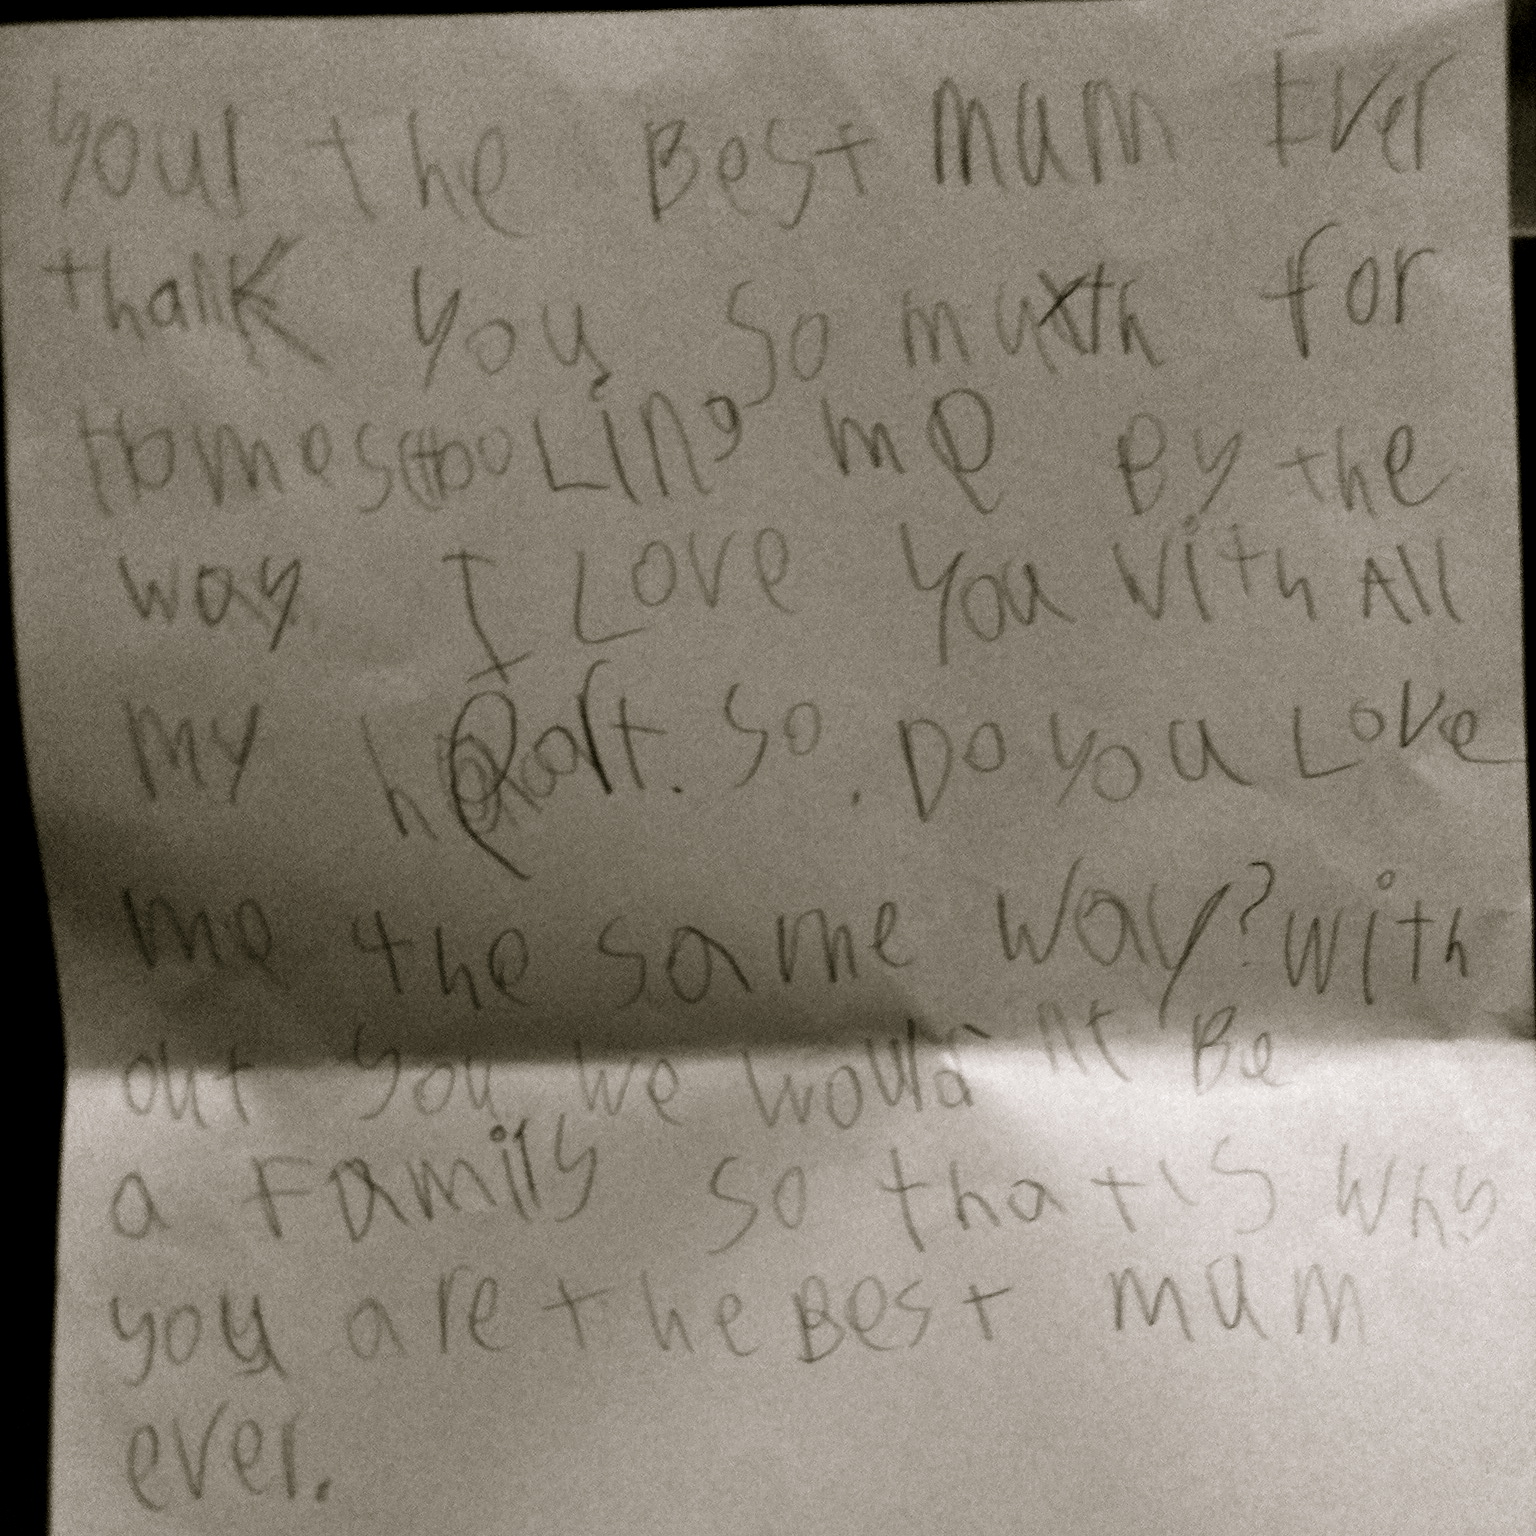 your the Best mum Ever
thank you so mutch for
Homeschooling me By the
way I Love you with All
my heart. so. Do you Love
me the same way? with
out you we would nt Be
a Family so that is why
you are the Best mum
ever.